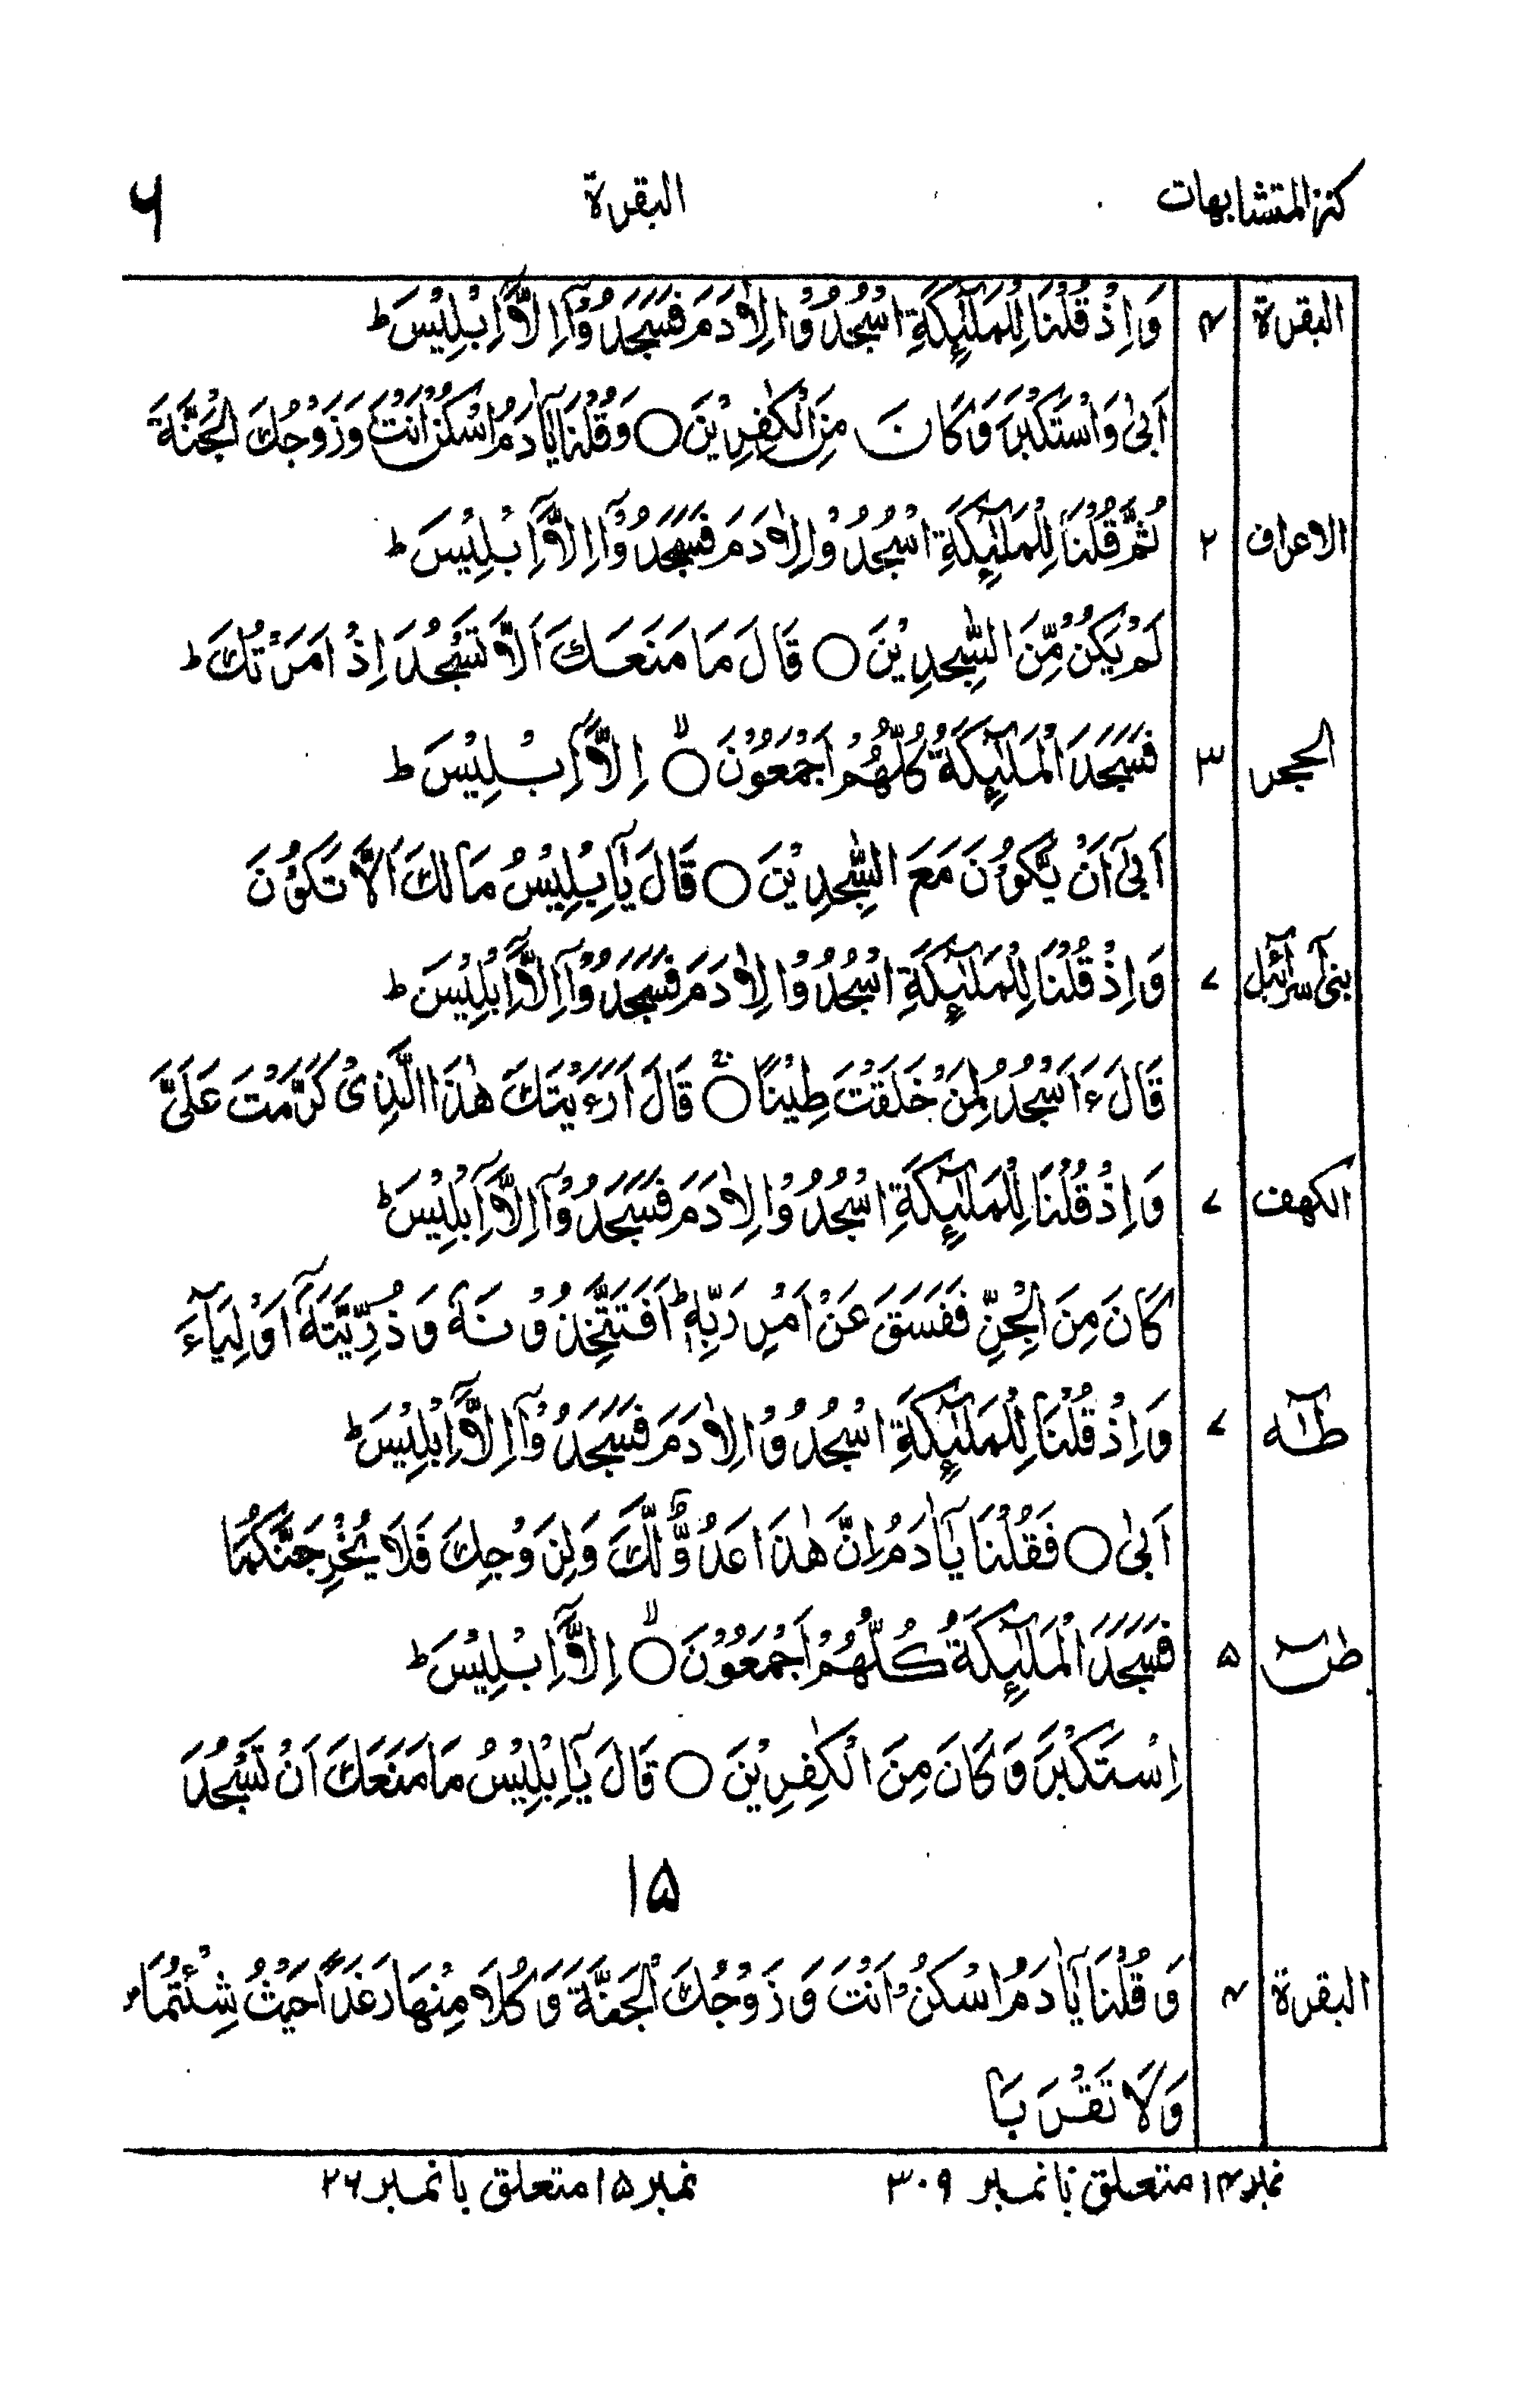 كنز المتشابهات البقرة ٦
البقرة ۴ وَاِذْ قُلْنَا لِلْمَلٰٓئِكَةِ اسْجُدُوْا لِاٰدَمَ فَسَجَدُوْٓا اِلَّآ اِبْلِيْسَ ؕ
اَبٰى وَاسْتَكْبَرَ وَكَانَ مِنَ الْكٰفِرِيْنَ ○ وَقُلْنَا يٰٓاٰدَمُ اسْكُنْ اَنْتَ وَزَوْجُكَ الْجَنَّةَ
الاعراف ۲ ثُمَّ قُلْنَا لِلْمَلٰٓئِكَةِ اسْجُدُوْا لِاٰدَمَ فَسَجَدُوْٓا اِلَّآ اِبْلِيْسَ ؕ
لَمْ يَكُنْ مِّنَ السّٰجِدِيْنَ ○ قَالَ مَا مَنَعَكَ اَلَّا تَسْجُدَ اِذْ اَمَرْتُكَ ؕ
الحجر ۳ فَسَجَدَ الْمَلٰٓئِكَةُ كُلُّهُمْ اَجْمَعُوْنَ ○ۙ اِلَّآ اِبْلِيْسَ ؕ
اَبٰٓى اَنْ يَّكُوْنَ مَعَ السّٰجِدِيْنَ ○ قَالَ يٰٓاِبْلِيْسُ مَا لَكَ اَلَّا تَكُوْنَ
بنیٓ اسرآئیل ۷ وَاِذْ قُلْنَا لِلْمَلٰٓئِكَةِ اسْجُدُوْا لِاٰدَمَ فَسَجَدُوْٓا اِلَّآ اِبْلِيْسَ ؕ
قَالَ ءَاَسْجُدُ لِمَنْ خَلَقْتَ طِيْنًا ○ۚ قَالَ اَرَءَيْتَكَ هٰذَا الَّذِىْ كَرَّمْتَ عَلَىَّ
الكهف ۷ وَاِذْ قُلْنَا لِلْمَلٰٓئِكَةِ اسْجُدُوْا لِاٰدَمَ فَسَجَدُوْٓا اِلَّآ اِبْلِيْسَ ؕ
كَانَ مِنَ الْجِنِّ فَفَسَقَ عَنْ اَمْرِ رَبِّهٖ ؕ اَفَتَتَّخِذُوْنَهٗ وَ ذُرِّيَّتَهٗٓ اَوْلِيَآءَ
طٰٓه ۷ وَاِذْ قُلْنَا لِلْمَلٰٓئِكَةِ اسْجُدُوْا لِاٰدَمَ فَسَجَدُوْٓا اِلَّآ اِبْلِيْسَ ؕ
اَبٰى ○ فَقُلْنَا يٰٓاٰدَمُ اِنَّ هٰذَا عَدُوٌّ لَّكَ وَلِزَوْجِكَ فَلَا يُخْرِجَنَّكُمَا
صٓ ۵ فَسَجَدَ الْمَلٰٓئِكَةُ كُلُّهُمْ اَجْمَعُوْنَ ○ۙ اِلَّآ اِبْلِيْسَ ؕ
اِسْتَكْبَرَ وَكَانَ مِنَ الْكٰفِرِيْنَ ○ قَالَ يٰٓاِبْلِيْسُ مَا مَنَعَكَ اَنْ تَسْجُدَ
۱۵
البقرة ۴ وَ قُلْنَا يٰٓاٰدَمُ اسْكُنْ اَنْتَ وَ زَوْجُكَ الْجَنَّةَ وَ كُلَا مِنْهَا رَغَدًا حَيْثُ شِئْتُمَا
وَلَا تَقْرَبَا
نمبر ۱۴ متعلق بانمبر ۳۰۹ نمبر ۱۵ متعلق بانمبر ۲۶